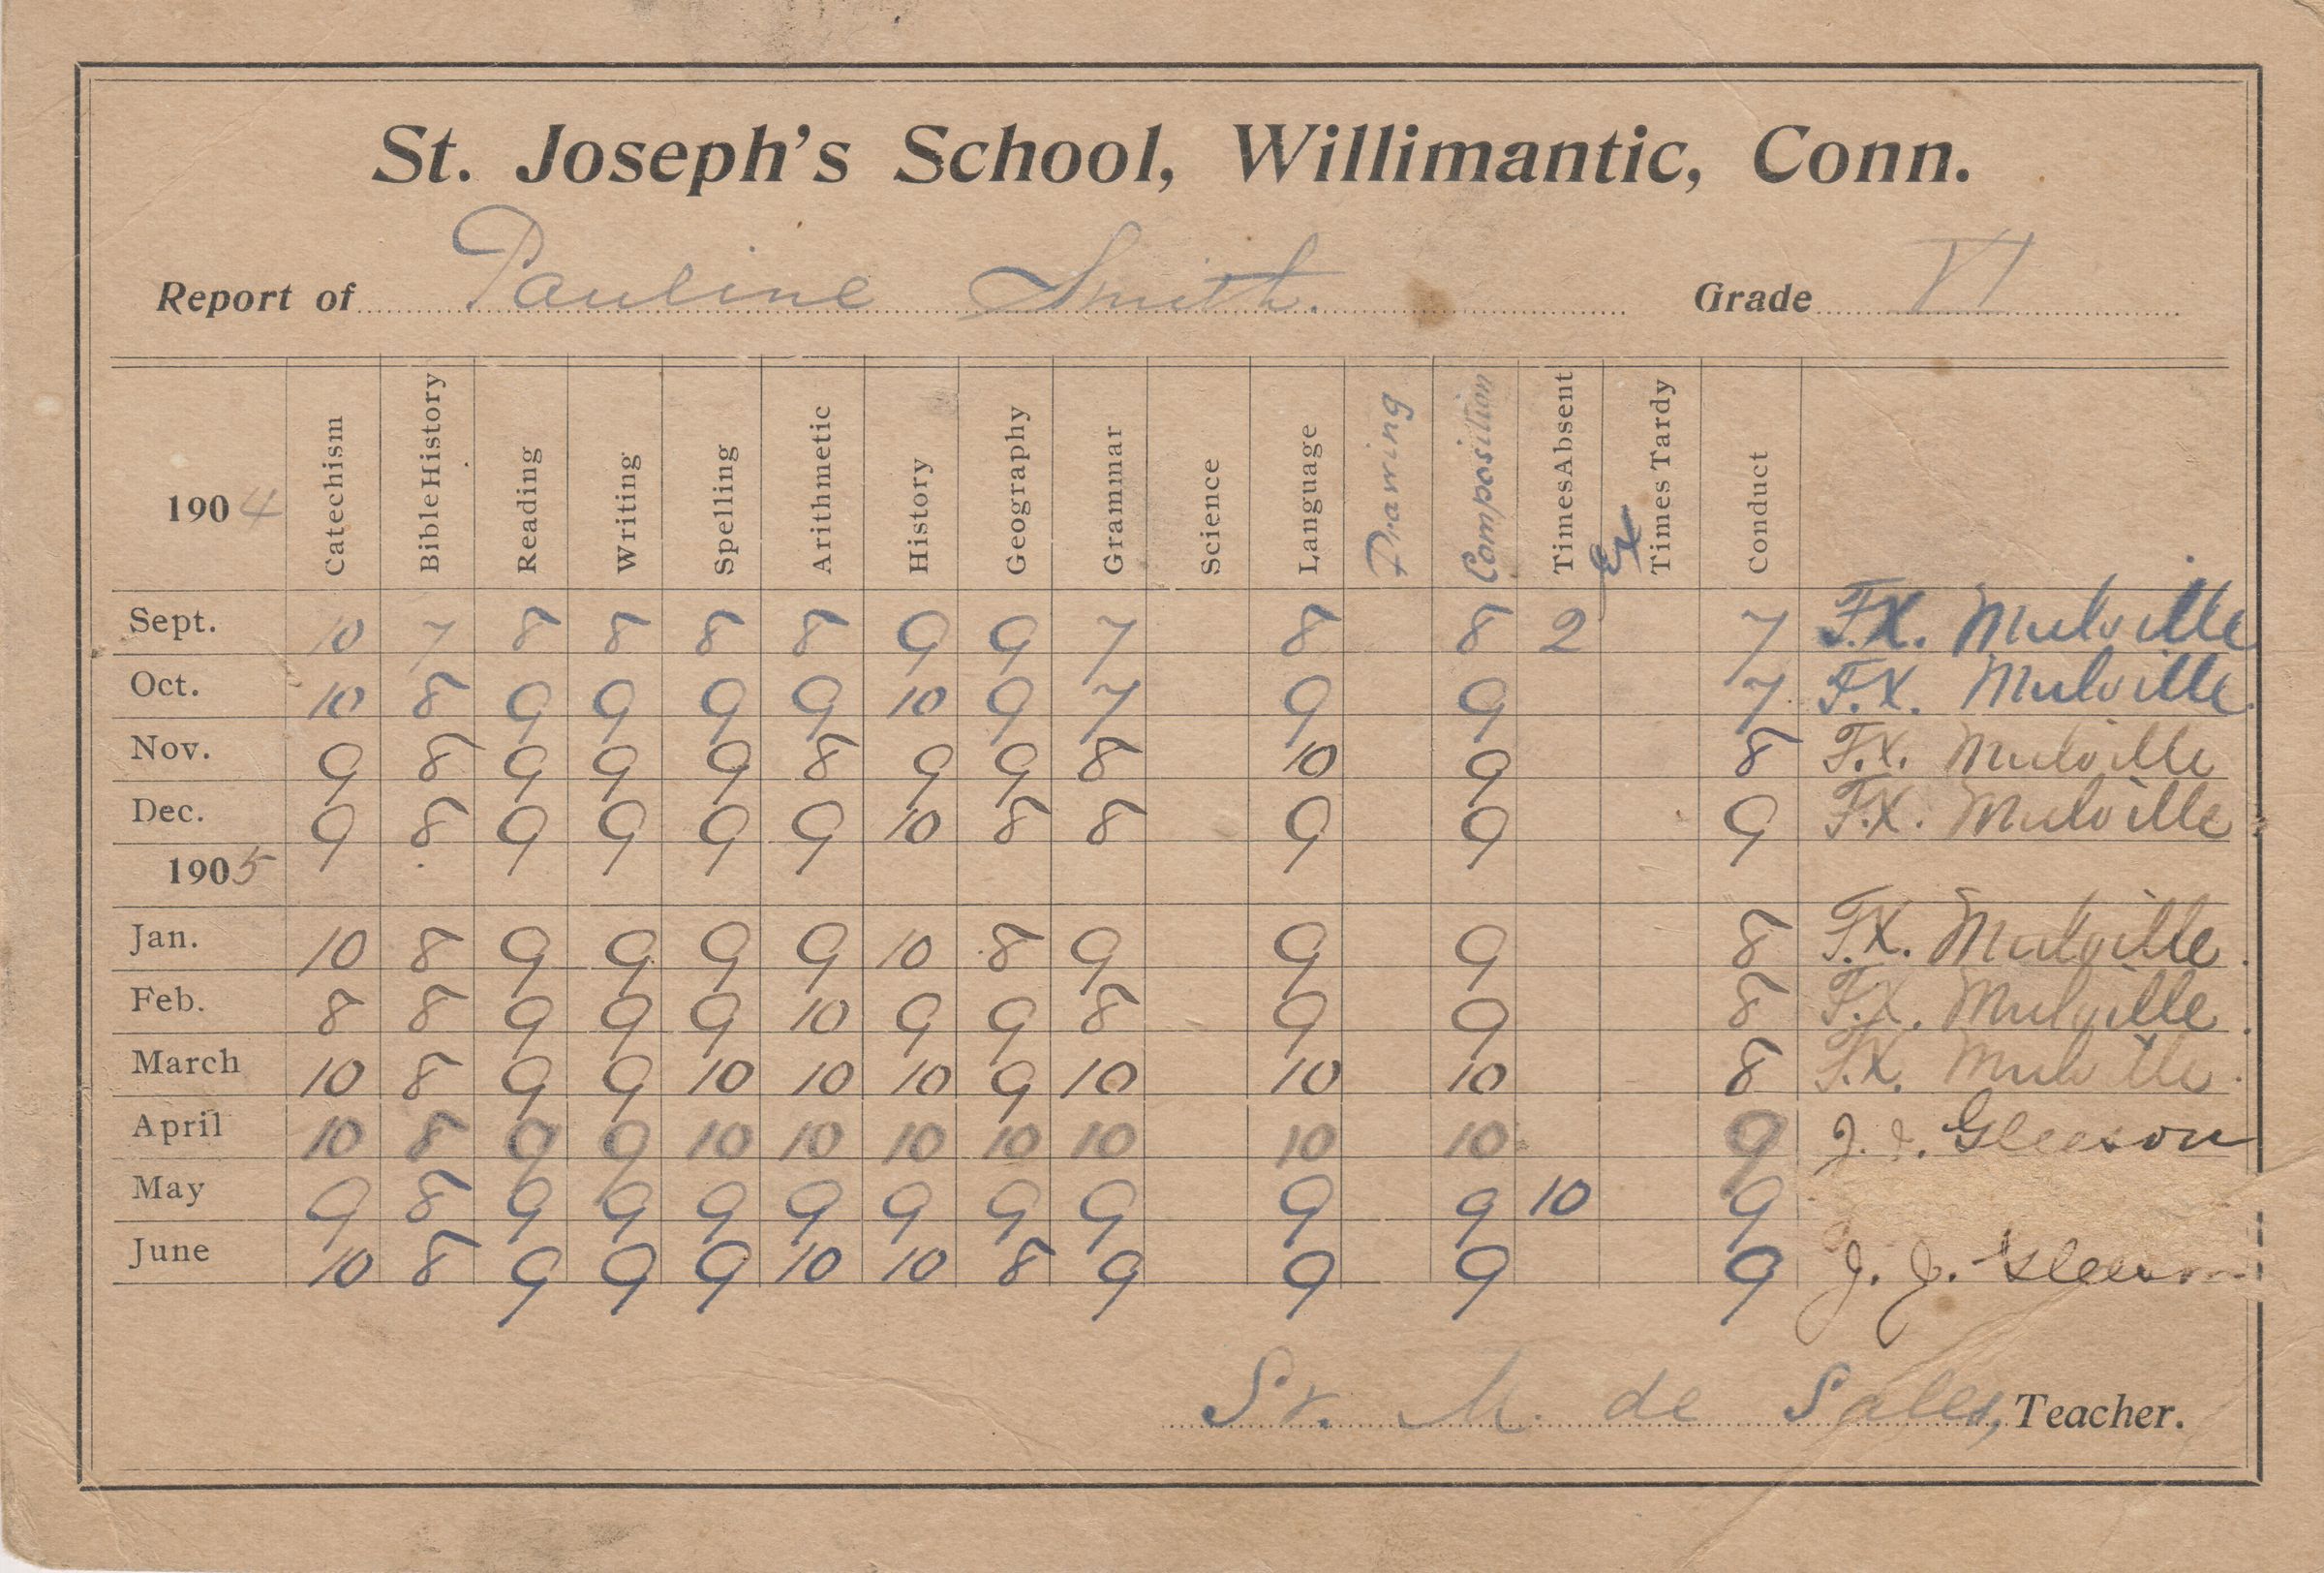 St. Joseph's School, Willimantic, Conn.
Report of Pauline Smith. Grade VI
1904 Catechism Bible History Reading Writing Spelling Arithmetic History Geography Grammar Science Language Drawing Composition Times Absent Ex Times Tardy Conduct
Sept. 10 7 8 8 8 8 9 9 7 8 8 2 7 F.X. Mulville
Oct. 10 8 9 9 9 9 10 9 7 9 9 7 F.X. Mulville.
Nov. 9 8 9 9 9 8 9 9 8 10 9 8 F.X. Mulville
Dec. 9 8 9 9 9 9 10 8 8 9 9 9 F.X. Mulville
1905
Jan. 10 8 9 9 9 9 10 8 9 9 9 8 F.X. Mulville.
Feb. 8 8 9 9 9 10 9 9 8 9 9 8 F.X. Mulville.
March 10 8 9 9 10 10 10 9 10 10 10 8 F.X. Mulville.
April 10 8 9 9 10 10 10 10 10 10 10 9 J. J. Gleeson
May 9 8 9 9 9 9 9 9 9 9 9 10 9
June 10 8 9 9 9 10 10 8 9 9 9 9 J. J. Gleeson
Sr. M. de Sales, Teacher.